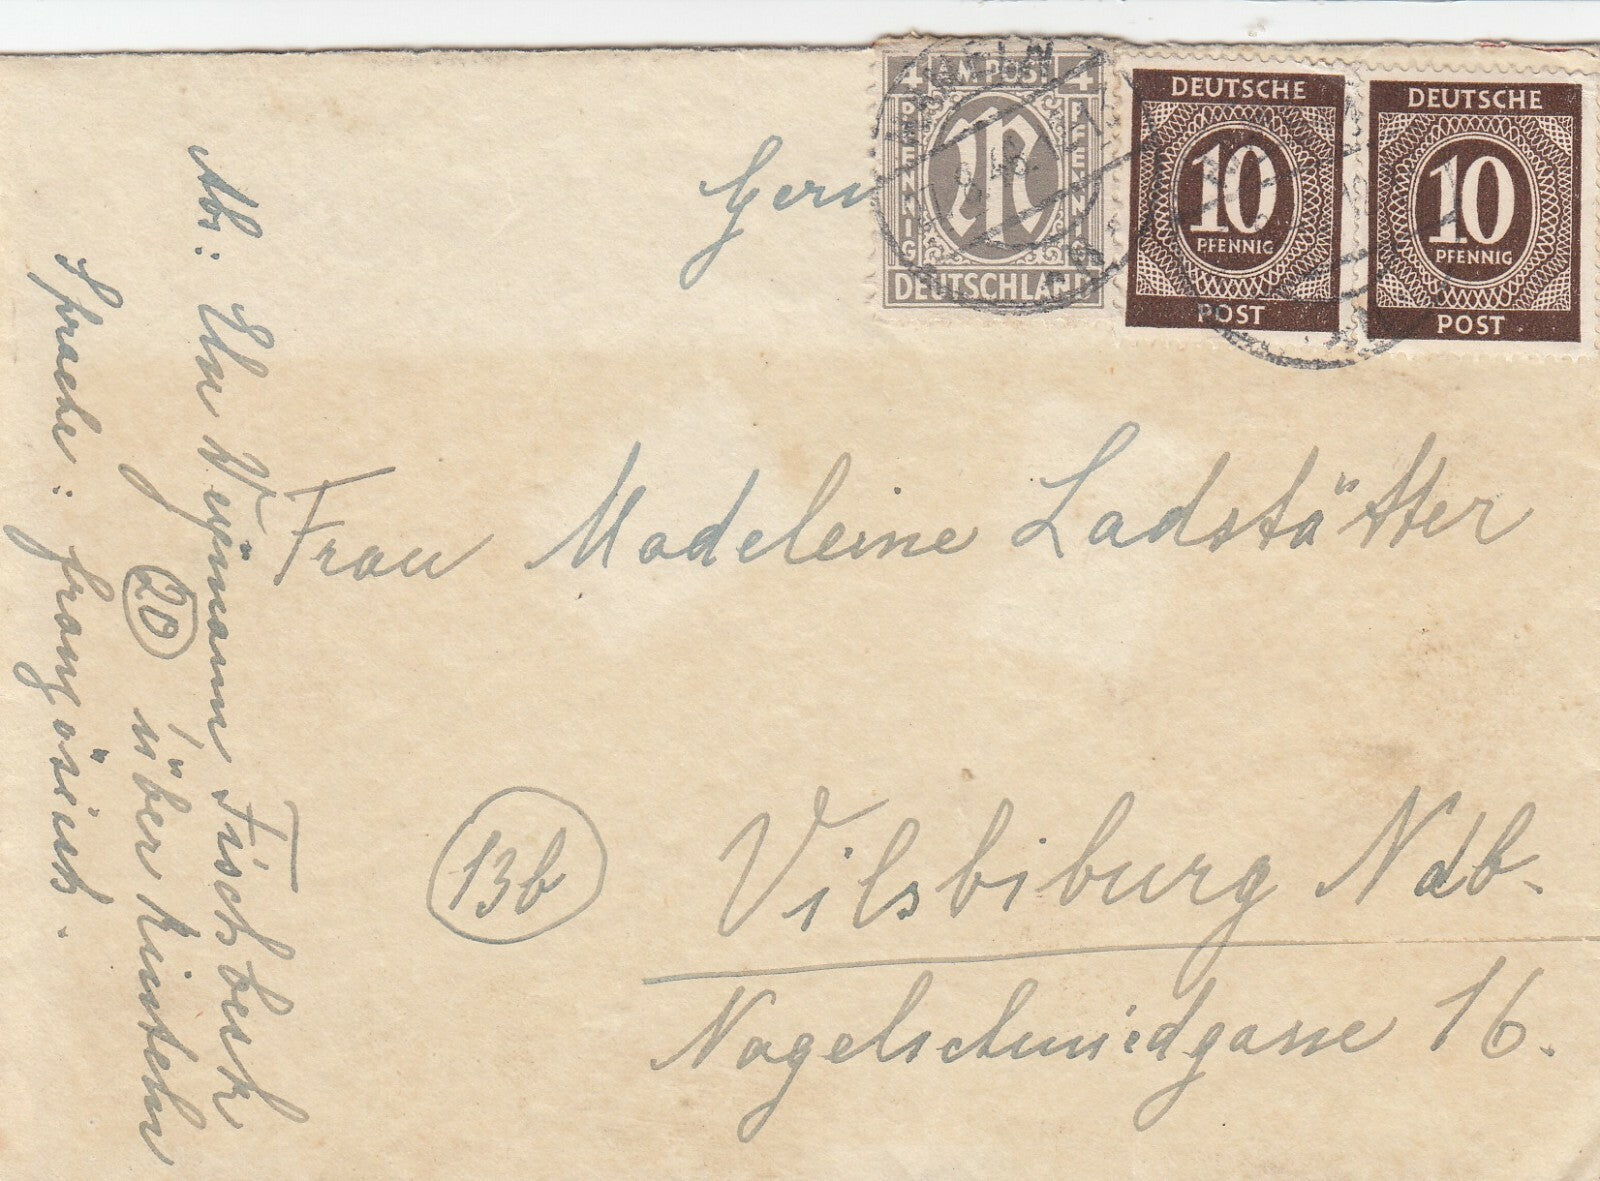 4 AM POST 4
PFENNIG
PFENNIG
DEUTSCHLAND
DEUTSCHE
10
PFENNIG
POST
DEUTSCHE
10
PFENNIG
POST
HAMELN
Frau Madeleine Ladstätter
13b
Vilsbiburg Ndb.
Nagelschmiedgasse 16.
Abs: Weymann Fischbeck
20 über Hameln
Sprache: französisch.